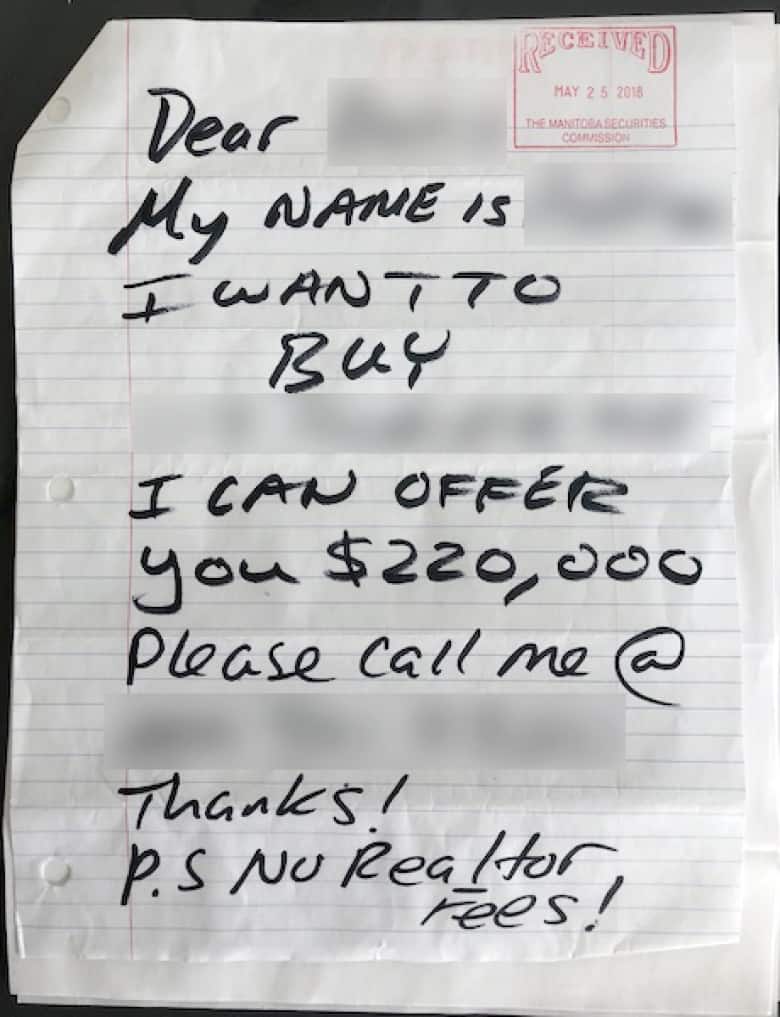 RECEIVED
MAY 25 2018
THE MANITOBA SECURITIES
COMMISSION
Dear
My NAME is
I WANT TO
BUY
I CAN OFFER
you $220,000
Please call me @
Thanks!
P.S NO Realtor
Fees!